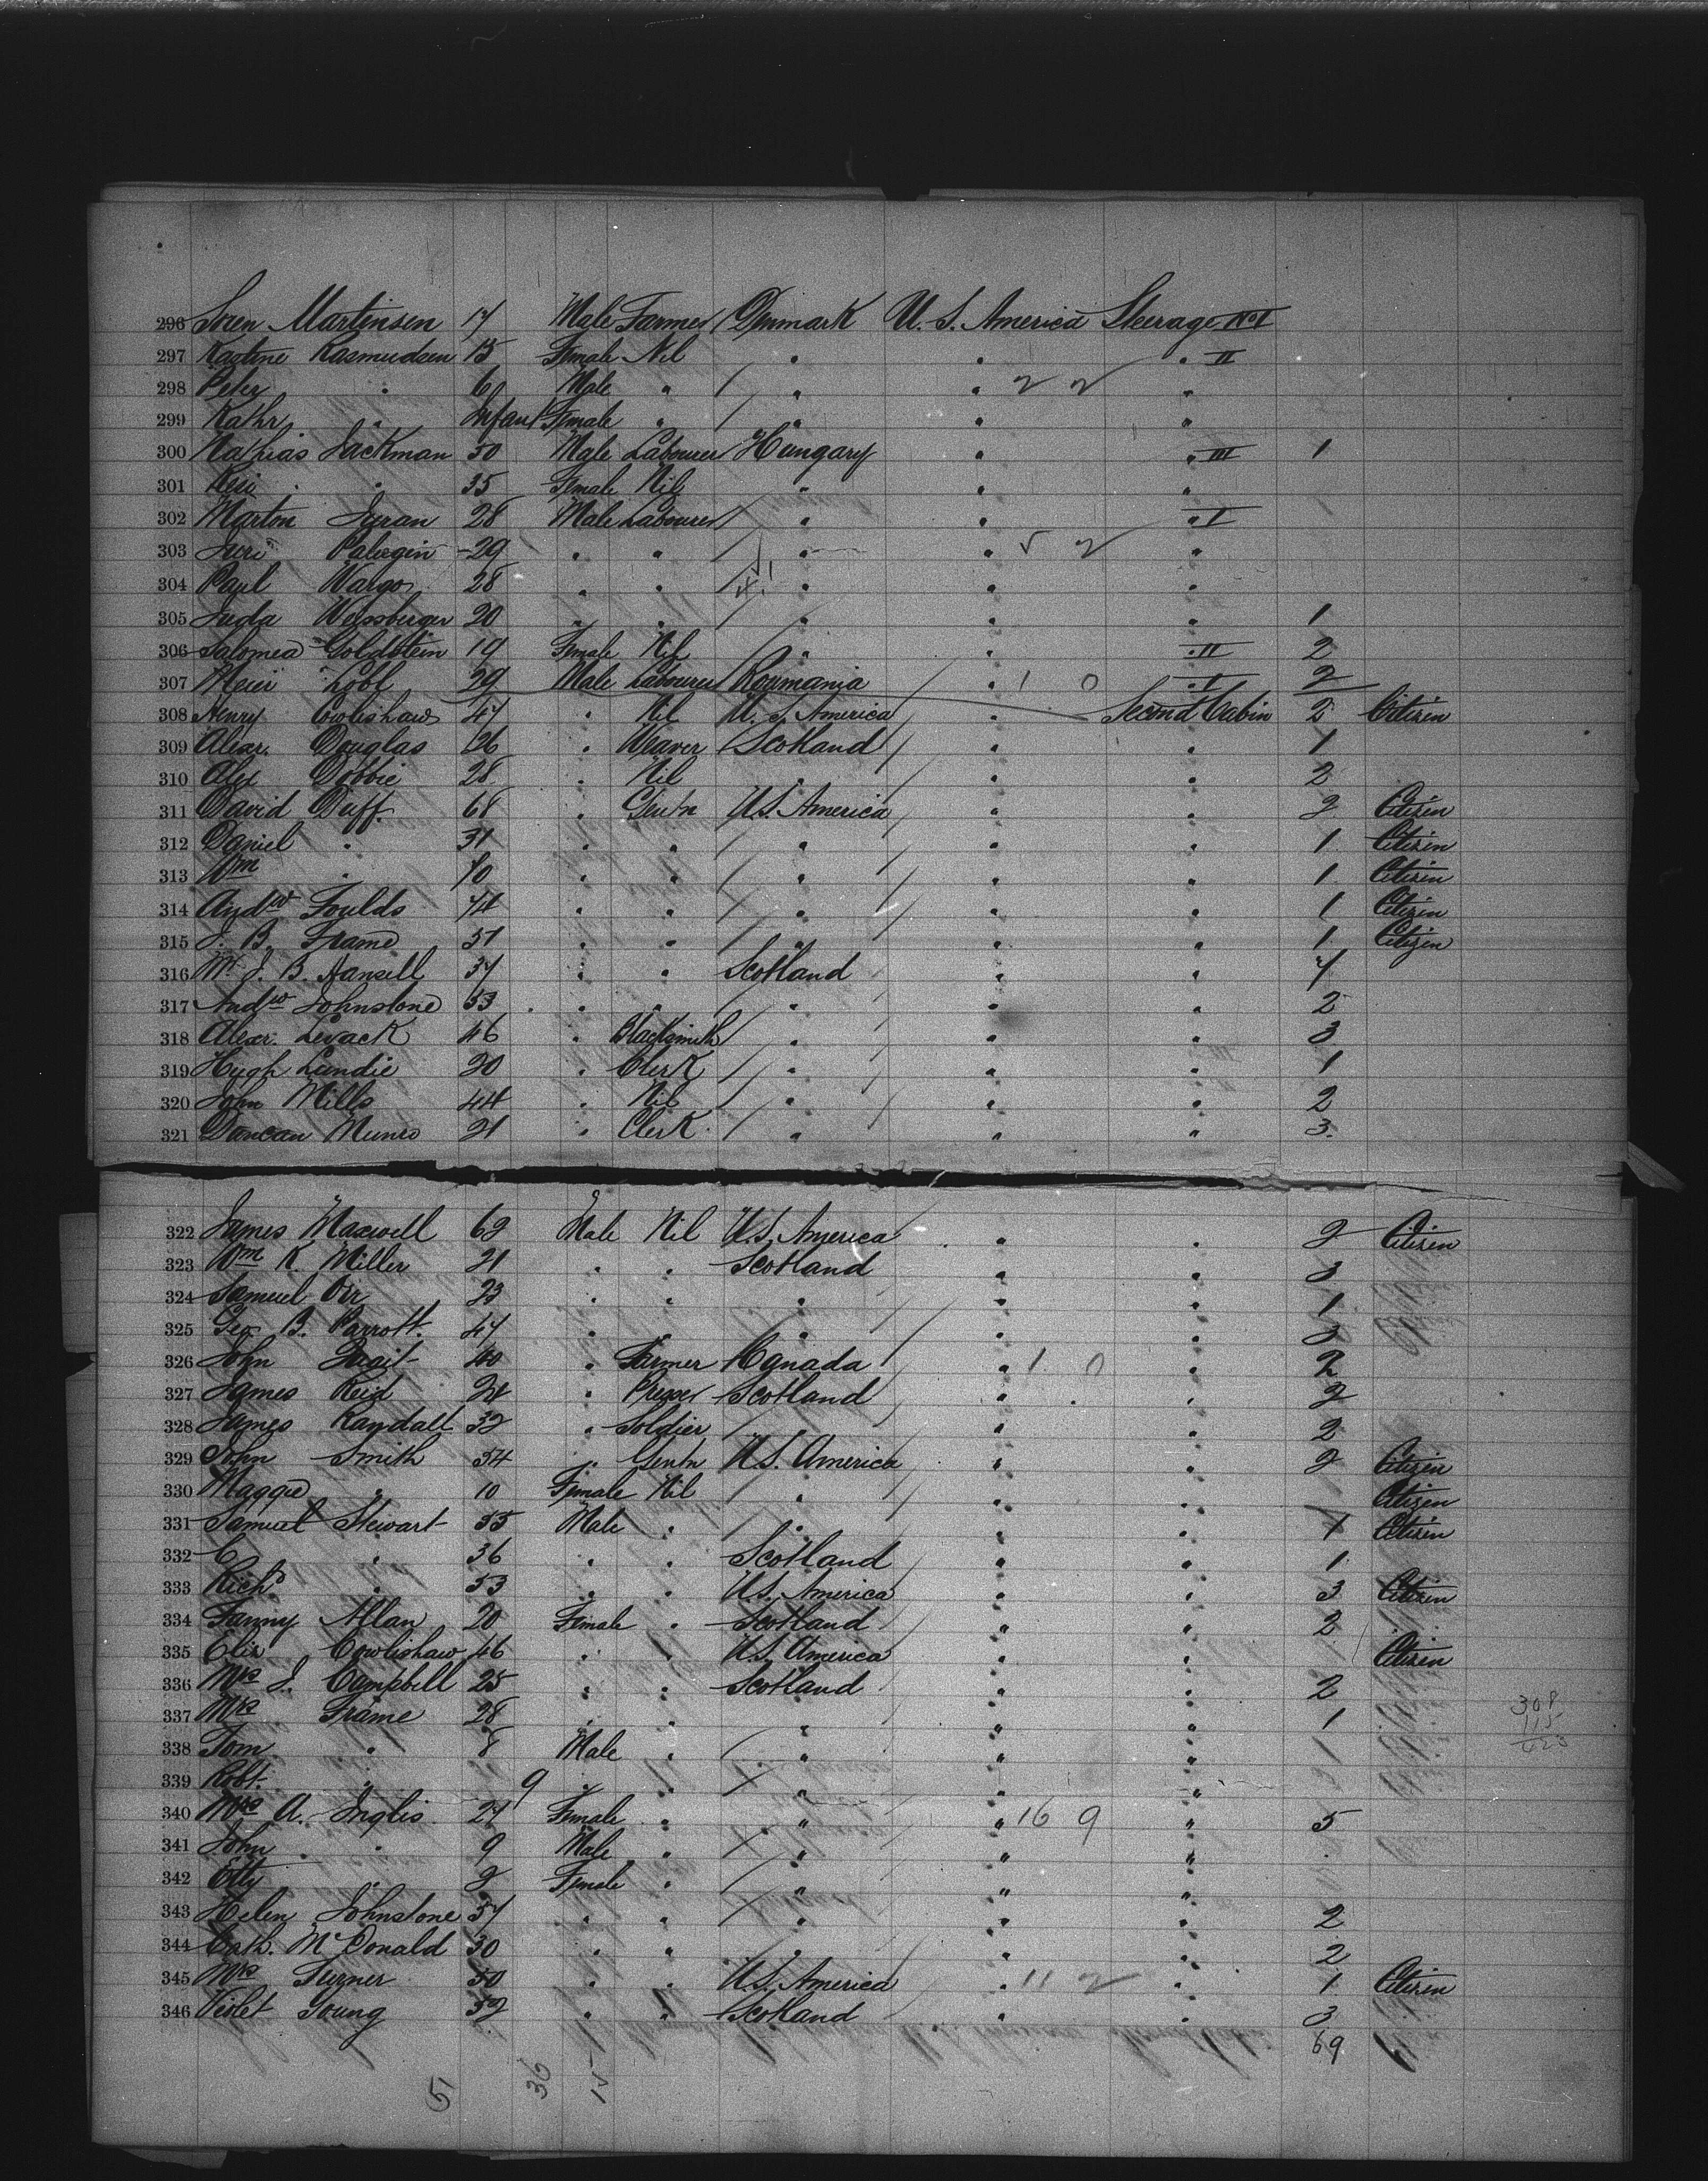 296 Soren Martinsen 17 Male Farmer Denmark U.S. America Steerage No I
297 Kastine Rasmudsen 15 Female Nil " " " II
298 Peter " 6 Male " " " 2 2 "
299 Kathr " Infant Female " " " "
300 Mathias Jackman 30 Male Labourer Hungary " " III 1
301 Resi " 35 Female Nil " " "
302 Marton Juran 28 Male Labourer " " " I
303 Juri Palergin 29 " " " " 5 2 "
304 Paul Wargo 28 " " " " "
305 Juda Weissberger 20 " " " " " 1
306 Salomea Goldstein 19 Female Nil " " " II 2
307 Meier Lobl 29 Male Labourer Roumania " 1 0 " I 2
308 Henry Cowlishaw 47 " Nil U.S. America " Second Cabin 2 Citizen
309 Alexr. Douglas 26 " Weaver Scotland " " 1
310 Alex Dobbie 28 " Nil " " " 2
311 David Duff 68 " Gentn U.S. America " " 2 Citizen
312 Daniel " 31 " " " " " 1 Citizen
313 Wm " 70 " " " " " 1 Citizen
314 Andw Foulds 74 " " " " " 1 Citizen
315 J. B. Frame 31 " " " " " 1 Citizen
316 Mr J. B. Hansell 37 " " Scotland " " 7
317 Andw Johnstone 53 " " " " " 2
318 Alexr. Levack 46 " Blacksmith " " " 3
319 Hugh Lundie 20 " Clerk " " " 1
320 John Mills 44 " Nil " " " 2
321 Duncan Munro 21 " Clerk " " " 3
322 James Maxwell 62 Male Nil U.S. America " " 2 Citizen
323 Wm K. Miller 21 " " Scotland " " 3
324 Samuel Orr 23 " " " " " 1
325 Geo B. Parrott 47 " " " " " 3
326 John 40 " Farmer Canada " 1 0 " 2
327 James Reid 24 " Presser Scotland " " 2
328 James Randall 32 " Soldier " " " 2
329 John Smith 34 " Gentn U.S. America " " 2 Citizen
330 Maggie " 10 Female Nil " " " Citizen
331 Samuel Stewart 55 Male " " " " 1 Citizen
332 C " 36 " " Scotland " " 1
333 Richd " 53 " " U.S. America " " 3 Citizen
334 Fanny Allan 20 Female " Scotland " " 2
335 Eliz Cowlishaw 46 " " U.S. America " " Citizen
336 Mrs J. Campbell 25 " " Scotland " " 2
337 Mrs Frame 28 " " " " " 1
338 Tom " 8 Male " " " "
339 Robt " 9 " " " " "
340 Mrs A. Inglis 27 Female " " " 16 9 " 5
341 John " 9 Male " " " "
342 Etty " 2 Female " " " "
343 Helen Johnstone 57 " " " " " 2
344 Cath. McDonald 30 " " " " " 2
345 Mrs Turner 50 " " U.S. America " 11 2 " 1 Citizen
346 Violet Young 52 " " Scotland " " 3
69
51 36 15